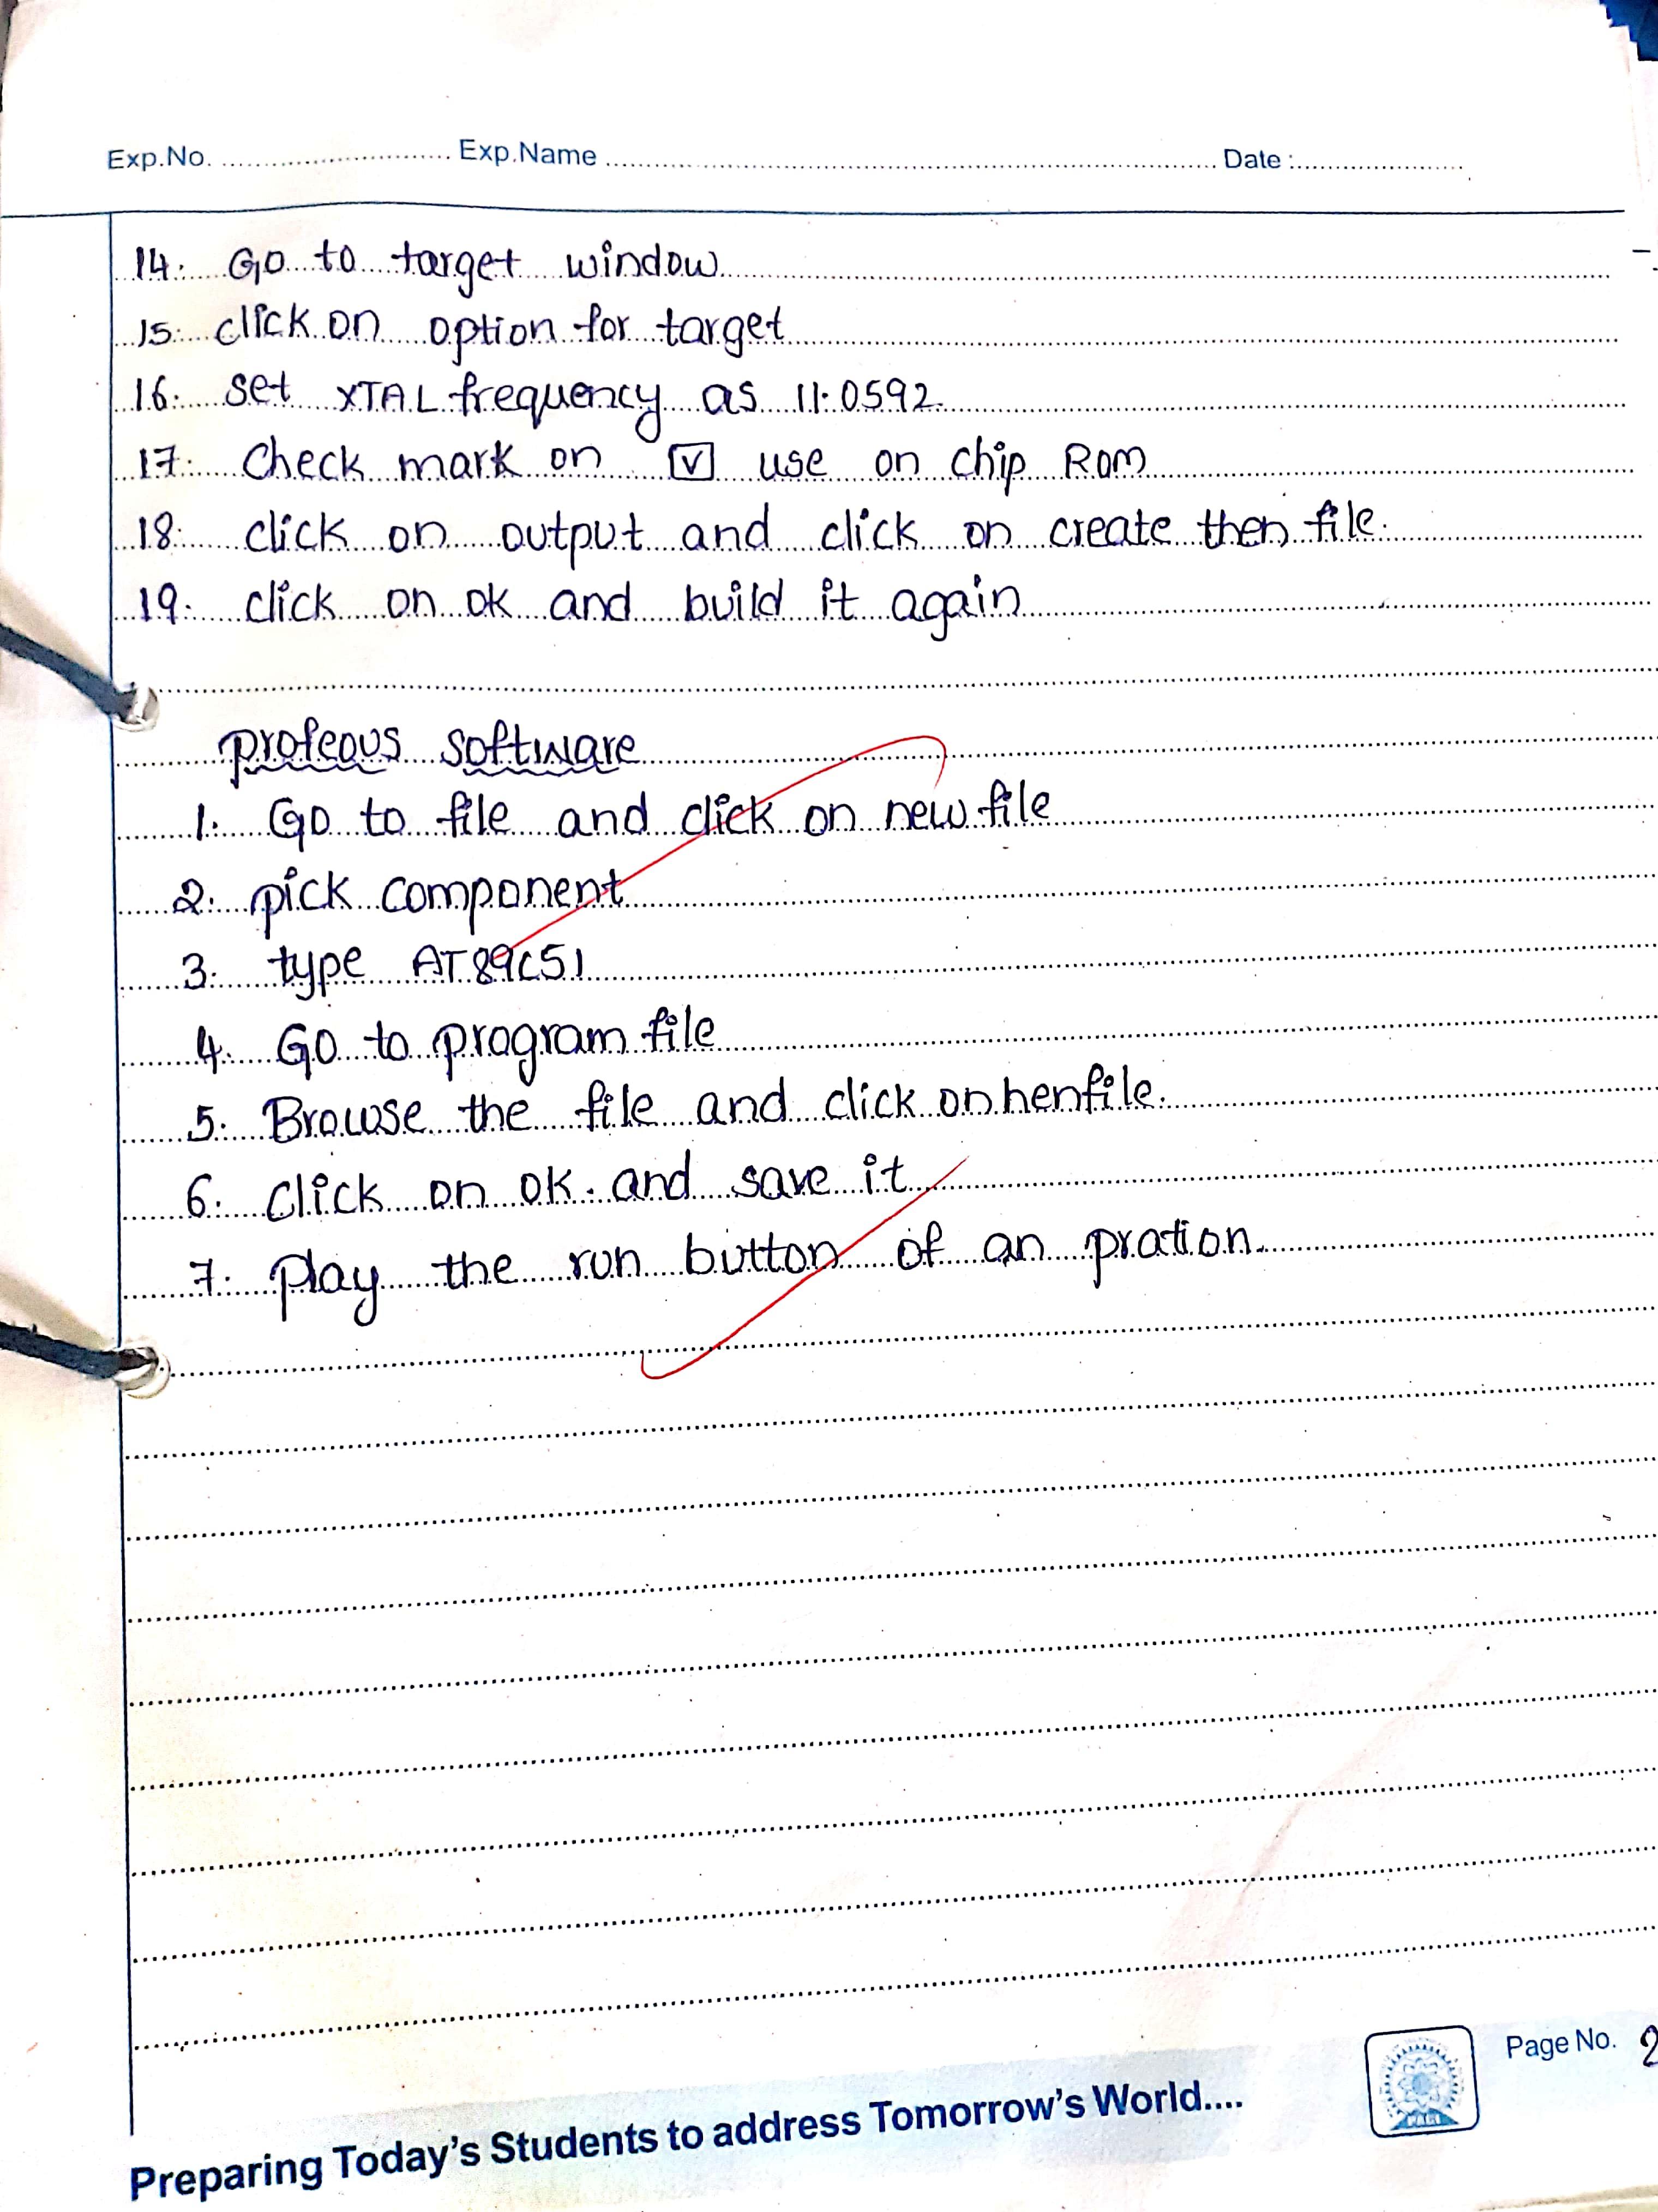 Exp.No. Exp.Name Date :
14. Go to target window
15. click on option for target
16. set XTAL frequency as 11.0592
17. Check mark on ☑ use on chip Rom
18. click on output and click on create then file.
19. click on ok and build it again
profeous software
1. Go to file and click on new file
2. pick component
3. type AT89C51
4. Go to program file
5. Browse the file and click on henfile.
6. Click on ok. and save it
7. play the run button of an pration.
Page No. 2
Preparing Today's Students to address Tomorrow's World....